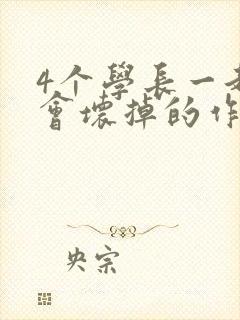 4个學長一
會壞掉的作
央宗